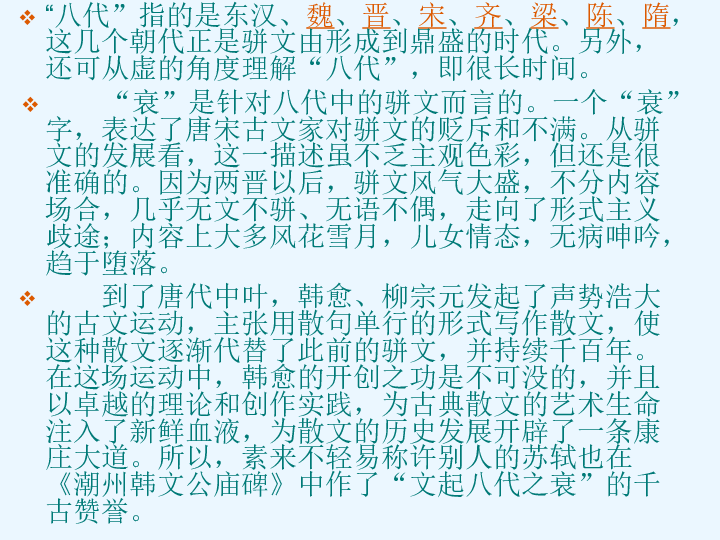 “八代”指的是东汉、魏、晋、宋、齐、梁、陈、隋，
这几个朝代正是骈文由形成到鼎盛的时代。另外，
还可从虚的角度理解“八代”，即很长时间。
“衰”是针对八代中的骈文而言的。一个“衰”
字，表达了唐宋古文家对骈文的贬斥和不满。从骈
文的发展看，这一描述虽不乏主观色彩，但还是很
准确的。因为两晋以后，骈文风气大盛，不分内容
场合，几乎无文不骈、无语不偶，走向了形式主义
歧途；内容上大多风花雪月，儿女情态，无病呻吟，
趋于堕落。
到了唐代中叶，韩愈、柳宗元发起了声势浩大
的古文运动，主张用散句单行的形式写作散文，使
这种散文逐渐代替了此前的骈文，并持续千百年。
在这场运动中，韩愈的开创之功是不可没的，并且
以卓越的理论和创作实践，为古典散文的艺术生命
注入了新鲜血液，为散文的历史发展开辟了一条康
庄大道。所以，素来不轻易称许别人的苏轼也在
《潮州韩文公庙碑》中作了“文起八代之衰”的千
古赞誉。